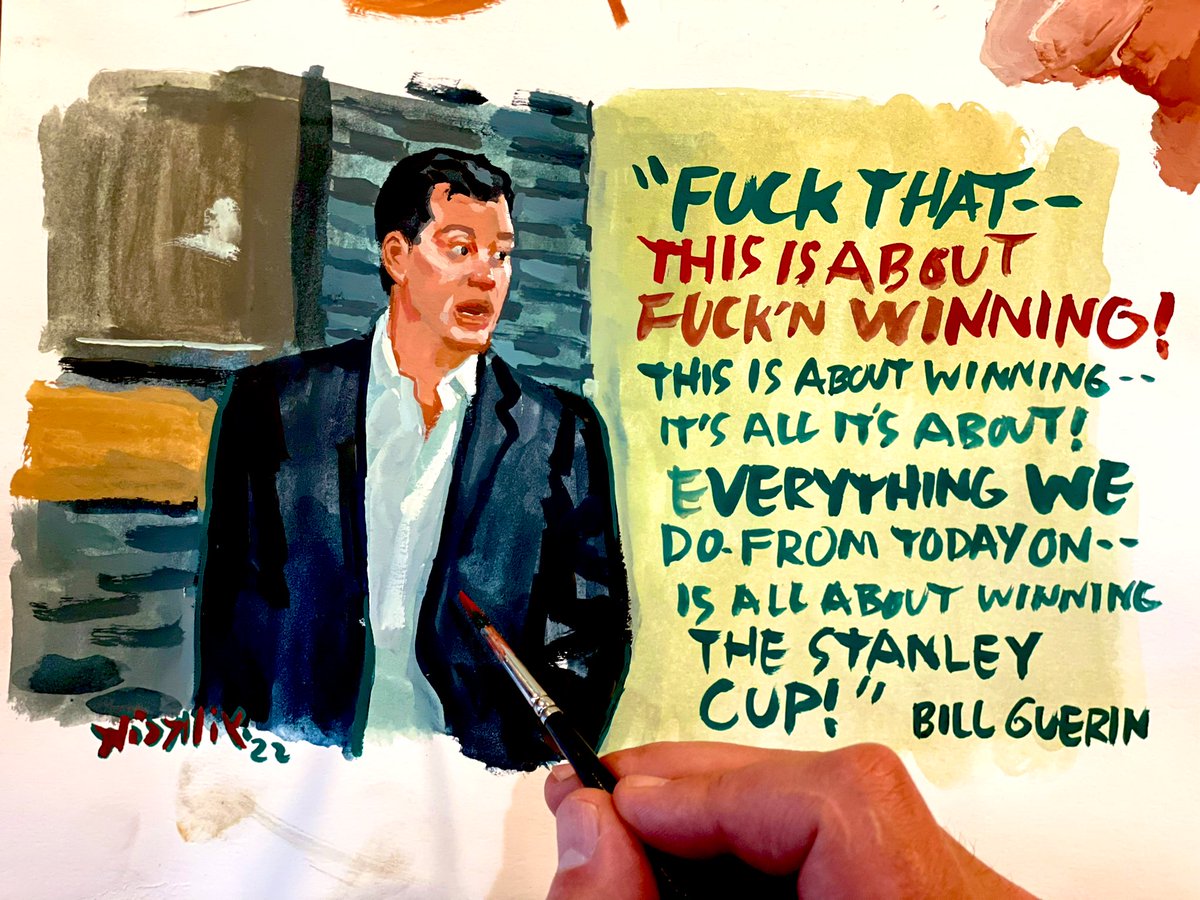 “FUCK THAT--
THIS IS ABOUT
FUCK'N WINNING!
THIS IS ABOUT WINNING--
IT'S ALL IT'S ABOUT!
EVERYTHING WE
DO-FROM TODAY ON--
IS ALL ABOUT WINNING
THE STANLEY
CUP!”
BILL GUERIN
'22